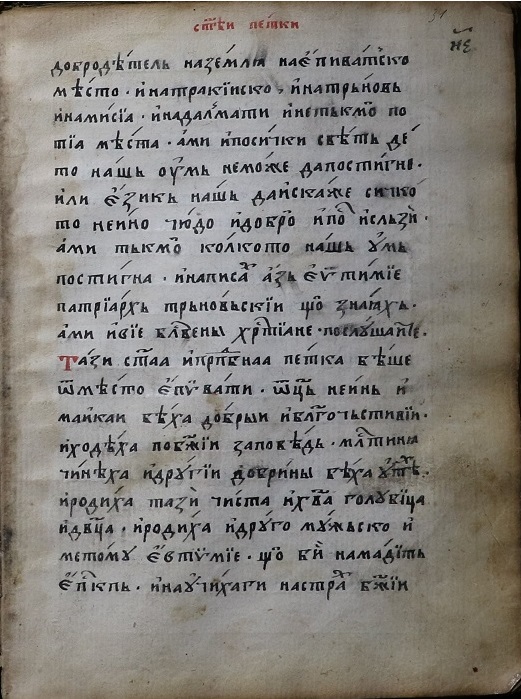 ст҃е́и пе́тки
31
н҃е
добродѣ́тель наземлѧ̀ наепива́тско
мѣ́сто · ѝнатракі́иско , ѝнатръ́новь
ѝнамисі́а · ѝнадалма́ти ѝнетъкмо̀ по
ті́а мѣ́ста · а́ми ѝпоси́чки свѣ́ть де́
то на́шь оу́мь немо́же дапости́гне ·
и́ли е҆зи́кь на́шь даи҆ска́же си́чко
то не́ино чю́до ѝдобро̀ ѝпо́лꙃ ·
а́ми тъкмо̀ коли́кото на́шь у́мь
пости́гна · ѝнаписа́х а́зь еѵ҆ти́міе
патрїа́рхь тръ́новьскїи що̀ зна́ѧхь ·
а́ми ѝвїе бл҃ве́ны хр҃тїа́не · послу́шаите ·
Та́зи ст҃аа ѝпрⷣпⷣбнаа пе́тка бѣ́ше
ѿмѣ́сто епѵ҆ва́ти · ѿц҃ь не́инь ѝ
ма́икаи бѣ́ха добры̀и ѝбл҃гочьсти́вїи ·
ѝходѣ́ха побж҃їи за́повѣдь · мл҃тинїа
чинѣ́ха ѝдругїи добри́ны бѣ́ха
ѝроди́ха тазѝ чи́ста ѝхв҃а голуби́ца
ѝдв҃ца · ѝроди́ха ѝдру́го му́жьско ѝ
ме́тому еѵ҆тѵ́міе · що̀ бѝ намади́ть
еп҃кпь · ѝнаучи́хаги настра́х бж҃їи